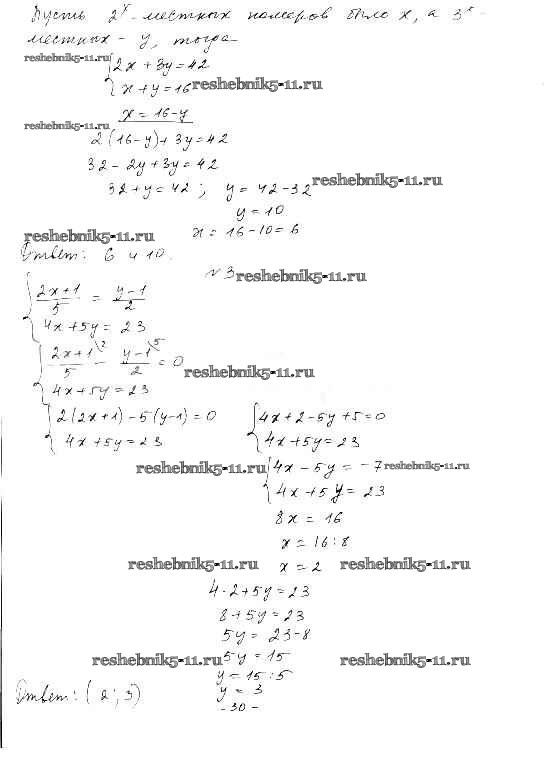 Пусть 2х-местных номеров было x, а 3х-
местных - y, тогда
reshebnik5-11.ru
2x + 3y = 42
x + y = 16 reshebnik5-11.ru
x = 16 - y
reshebnik5-11.ru
2(16 - y) + 3y = 42
32 - 2y + 3y = 42
32 + y = 42 ; y = 42 - 32 reshebnik5-11.ru
y = 10
reshebnik5-11.ru x = 16 - 10 = 6
Ответ: 6 и 10.
№ 3 reshebnik5-11.ru
(2x + 1)/5 = (y - 1)/2
4x + 5y = 23
(2x + 1\2)/5 - (y - 1\5)/2 = 0
reshebnik5-11.ru
4x + 5y = 23
2(2x + 1) - 5(y - 1) = 0 4x + 2 - 5y + 5 = 0
4x + 5y = 23 4x + 5y = 23
reshebnik5-11.ru 4x - 5y = -7 reshebnik5-11.ru
4x + 5y = 23
8x = 16
x = 16 : 8
reshebnik5-11.ru x = 2 reshebnik5-11.ru
4 · 2 + 5y = 23
8 + 5y = 23
5y = 23 - 8
reshebnik5-11.ru 5y = 15 reshebnik5-11.ru
y = 15 : 5
Ответ: (2; 3) y = 3
- 30 -